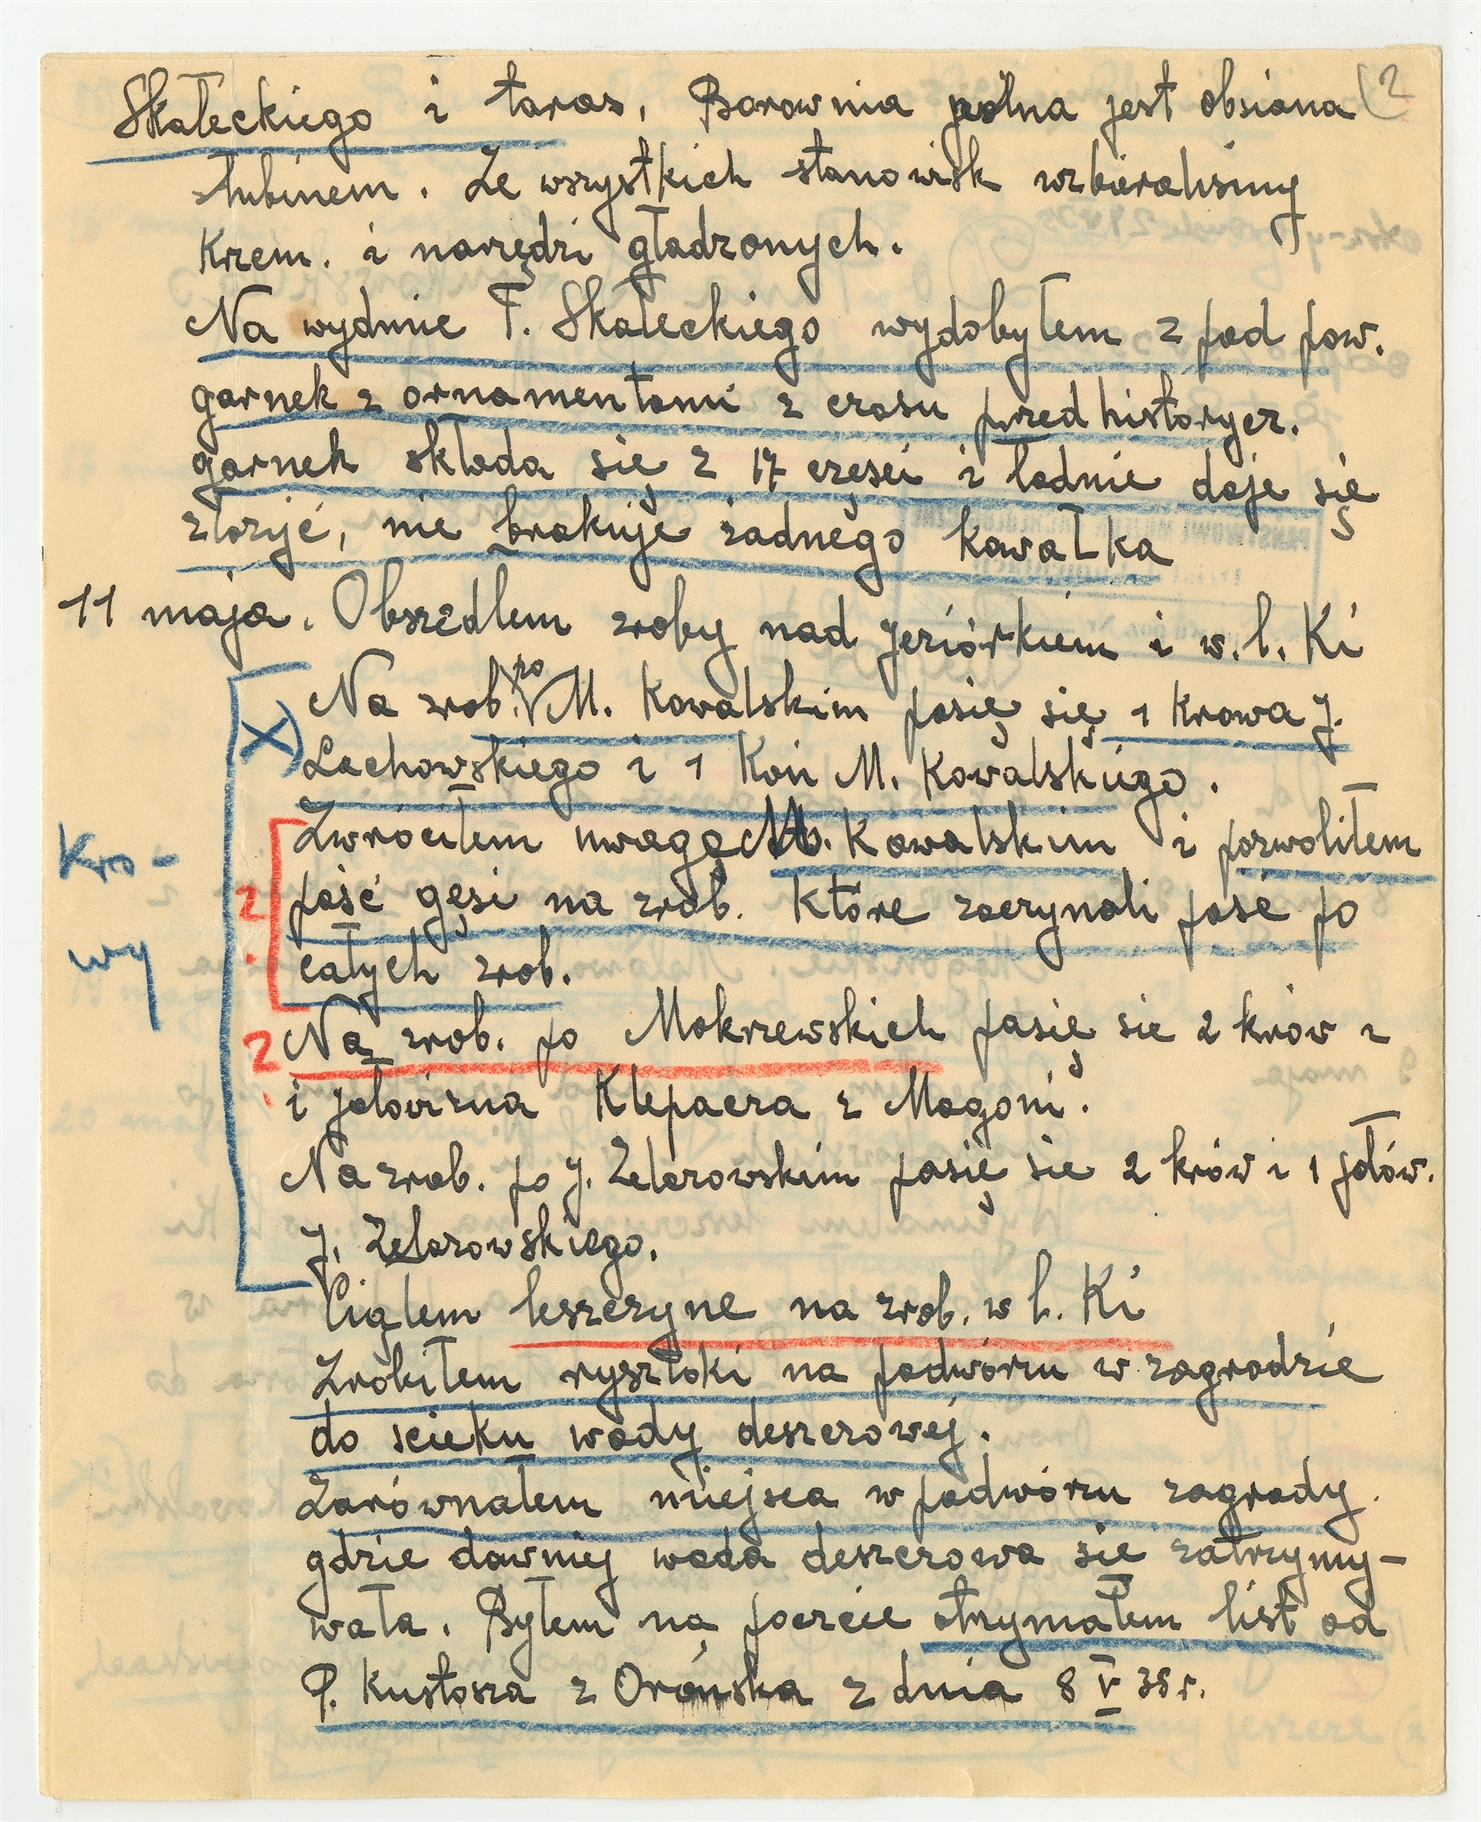 Skałeckiego i taras, Borownia polna jest obsiana (2
łubinem. Ze wszystkich stanowisk wzbieralismy
Krzem. i narzędzi gładzonych.
Na wydmie F. Skałeckiego wydobyłem z pod pow.
garnek z ornamentami z czasu przedhistorycz.
garnek składa się z 17 częsci i ładnie daje się
złożyć, nie brakuje żadnego kawałka
11 maja. Obszedłem zroby nad jeziórkiem i w. l. Ki
Na zrob. po M. Kowalskim pasię się 1 Krowa J.
Lachowskiego i 1 Koń M. Kowalskiego.
Zwrócitem uwagę M. Kowalskim i pozwolitem
paść gęsi na zrob. Które zaczynali pasć po
całych zrob.
Kro-
wy
? Na zrob. po Mokrzewskich pasię sie 2 krów i
? i jałowizna Klepacza z Magoni.
Na zrob. po J. Żelazowskim pasię sie 2 krów i 1 jałów.
J. Żelazowskiego.
Ciąłem leszczynę na zrob. w l. Ki
Zrobiłem rysztoki na podwórzu w zagrodzie
do scieku wody deszczowej.
Zarównałem miejsca w podwórzu zagrody.
gdzie dawniej woda deszczowa się zatrzymy-
wała. Byłem na poczcie otrzymałem list od
P. Kustosza z Orońska z dnia 8 V 38 r.